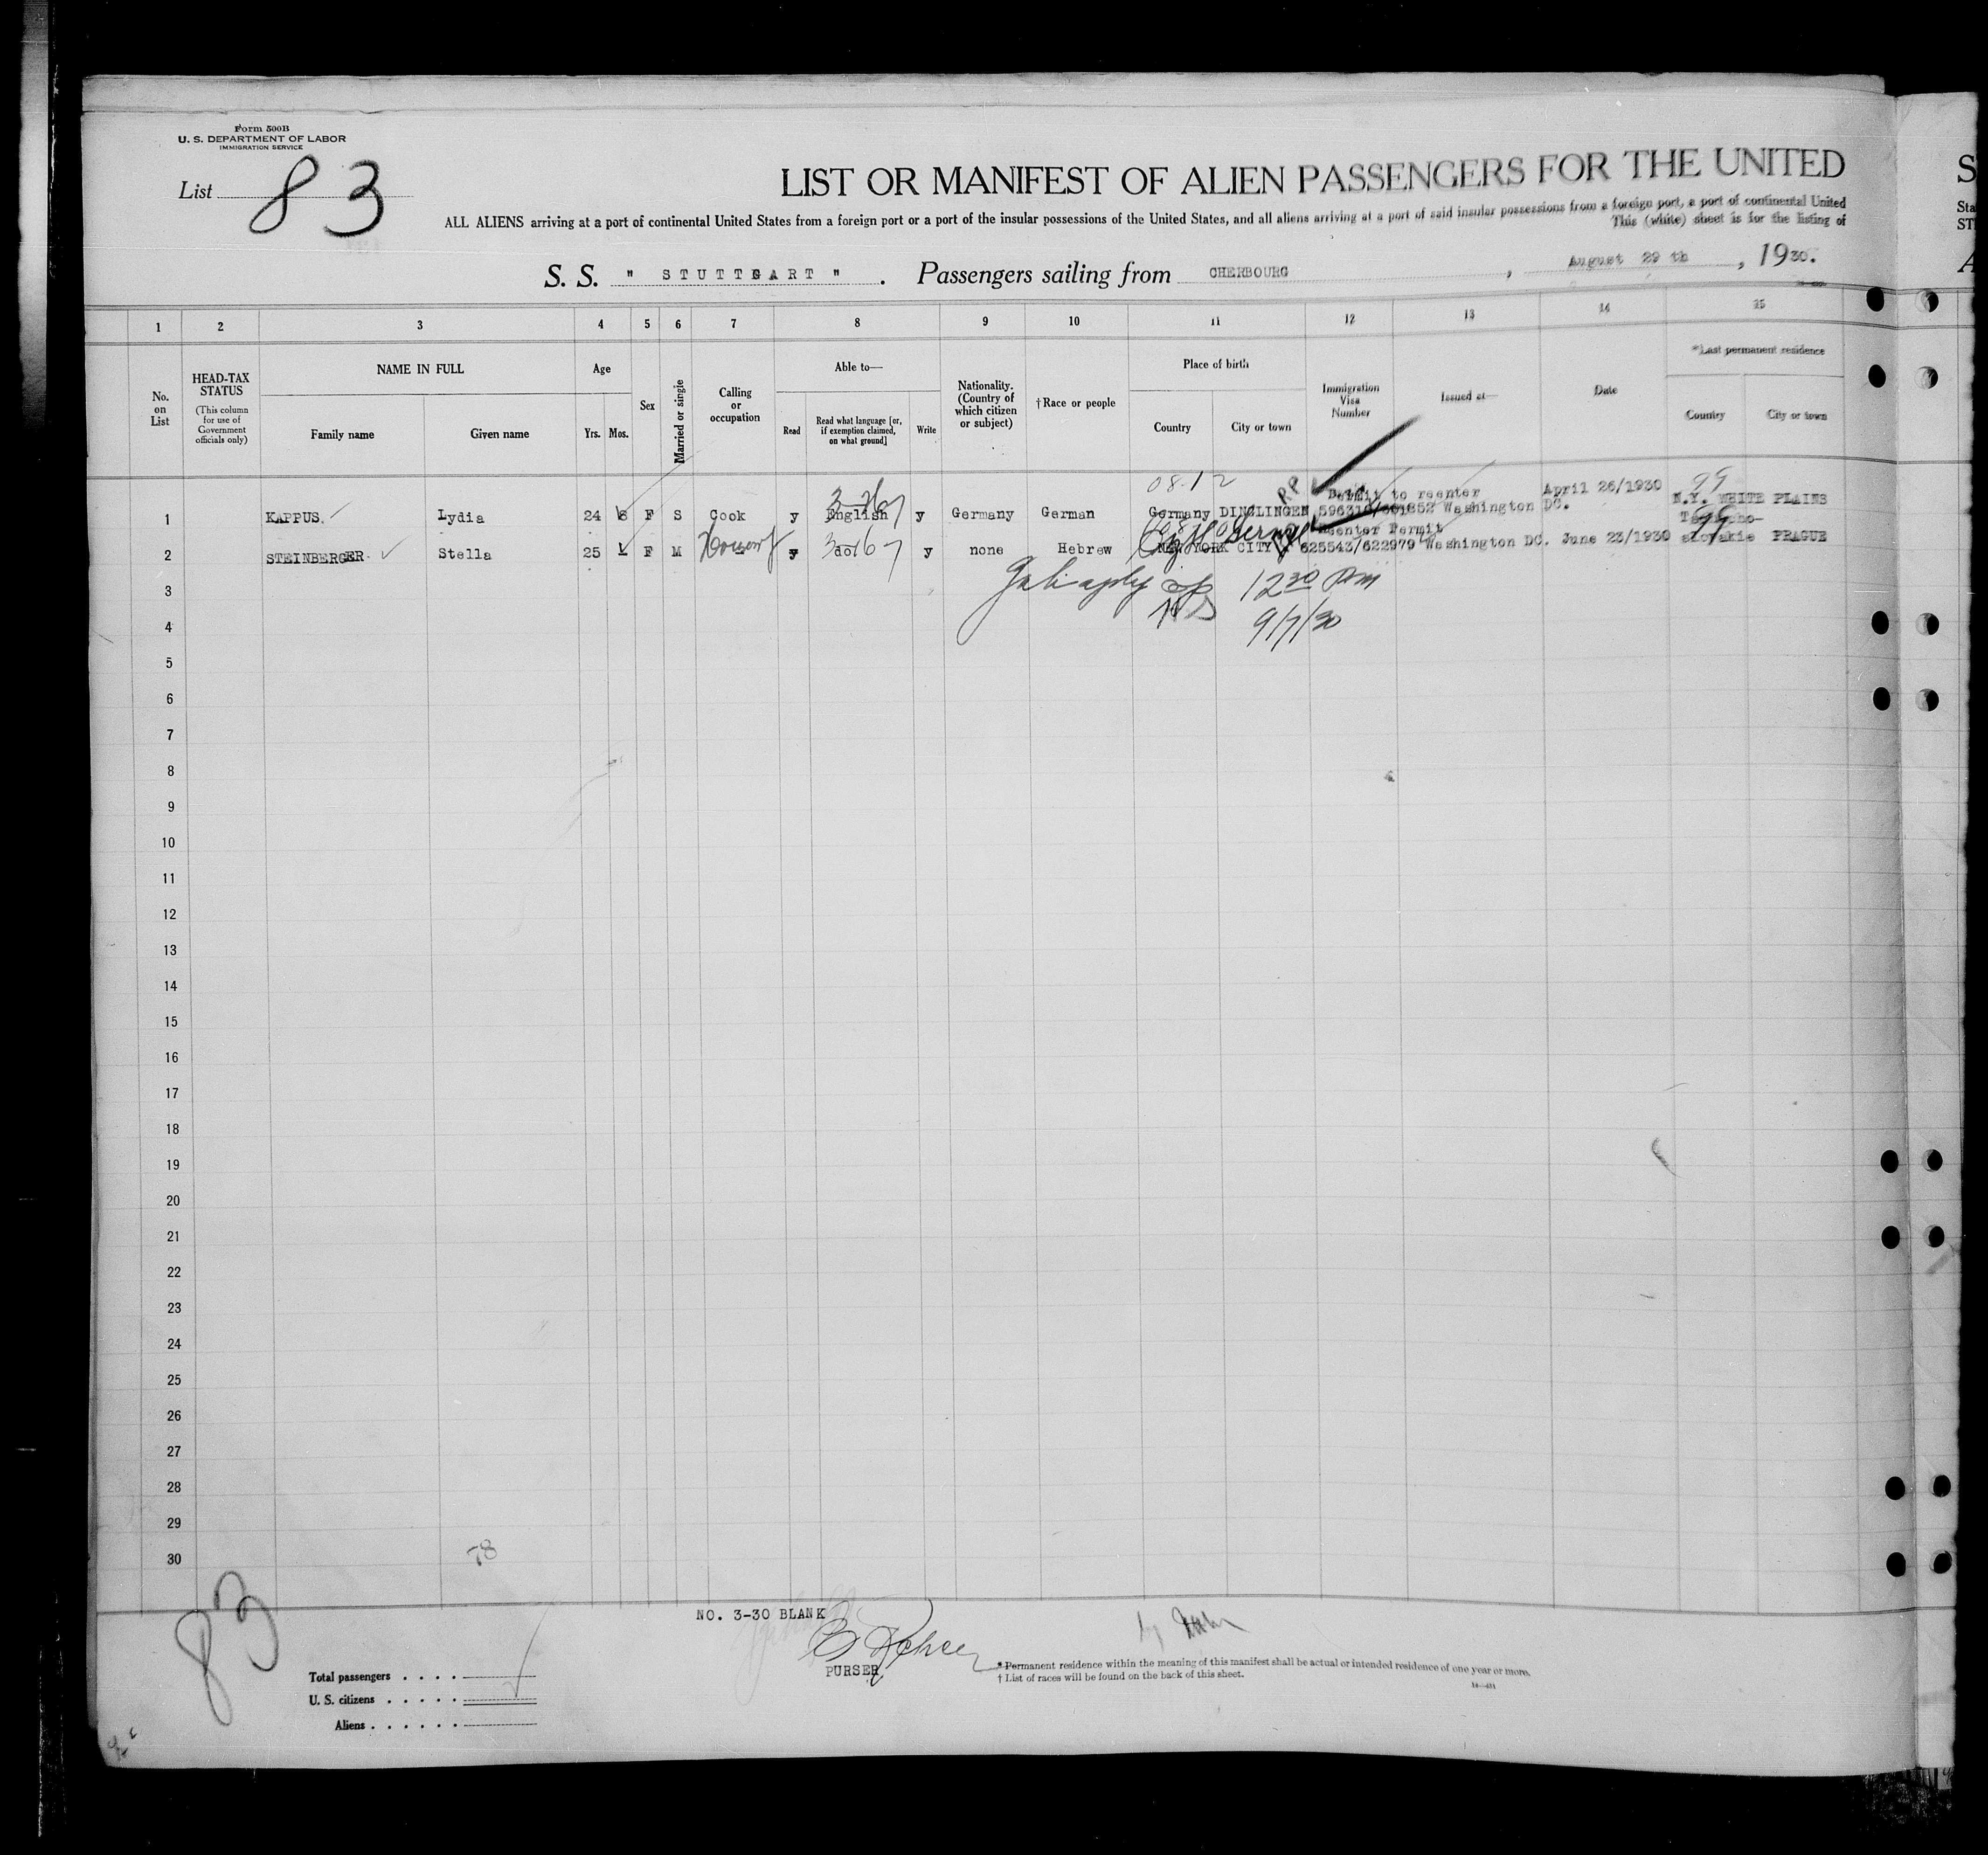 Form 500B
U. S. DEPARTMENT OF LABOR
IMMIGRATION SERVICE
List 83
LIST OR MANIFEST OF ALIEN PASSENGERS FOR THE UNITED
ALL ALIENS arriving at a port of continental United States from a foreign port or a port of the insular possessions of the United States, and all aliens arriving at a port of said insular possessions from a foreign port, a port of continental United
This (white) sheet is for the listing of
S. S. " STUTTGART ". Passengers sailing from CHERBOURG, August 29 th, 1930.
1 2 3 4 5 6 7 8 9 10 11 12 13 14 15
No. on List
HEAD-TAX STATUS
(This column for use of Government officials only)
NAME IN FULL
Family name Given name
Age
Yrs. Mos.
Sex
Married or single
Calling or occupation
Able to—
Read
Read what language [or, if exemption claimed, on what ground]
Write
Nationality. (Country of which citizen or subject)
†Race or people
Place of birth
Country City or town
Immigration Visa Number
Issued at—
Date
*Last permanent residence
Country City or town
08-12 PP 99
1 KAPPUS Lydia 24 8 F S Cook y English y Germany German Germany DINGLINGEN Permit to reenter Washington DC. April 26/1930 N.Y. WHITE PLAINS
2 STEINBERGER Stella 25 F M y do y none Hebrew NEW YORK CITY Reenter Permit 625543/622979 Washington DC. June 23/1930 Tschecho-slovakie PRAGUE
12 30 PM
9/7/30
3
4
5
6
7
8
9
10
11
12
13
14
15
16
17
18
19
20
21
22
23
24
25
26
27
28
29
30
78
83
NO. 3-30 BLANK
PURSER
Total passengers
U. S. citizens
Aliens
* Permanent residence within the meaning of this manifest shall be actual or intended residence of one year or more.
† List of races will be found on the back of this sheet.